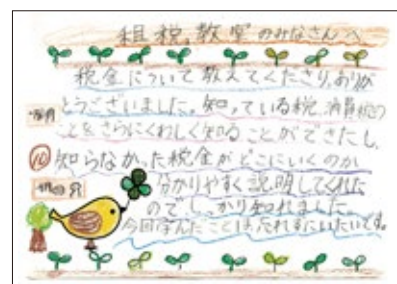 租税教室のみなさんへ
税金について教えてくださり、ありが
とうございました。知っている税、消費税の
ことをさらにくわしく知ることができたし、
知らなかった税金がどこにいくのか
分かりやすく説明してくれた
のでしっかり知れました。
今回学んだことは、忘れずにいたいです。